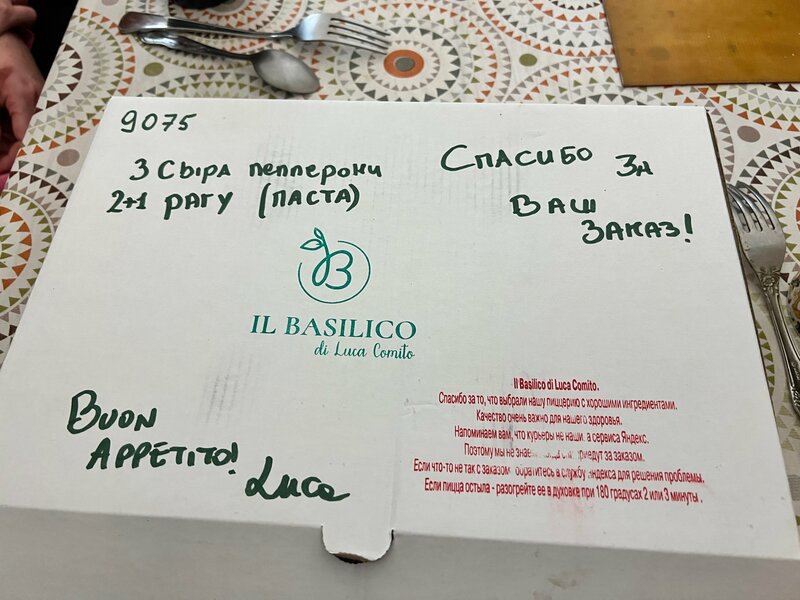 9075
3 Сыра пепперони
2+1 рагу (паста)
Спасибо за
Ваш
заказ!
B
IL BASILICO
di Luca Comito
BUON
APPETITO!
Luca
Il Basilico di Luca Comito.
Спасибо за то, что выбрали нашу пиццерию с хорошими ингредиентами.
Качество очень важно для нашего здоровья.
Напоминаем вам, что курьеры не наши, а сервиса Яндекс.
Поэтому мы не знаем приедут за заказом.
Если что-то не так с заказом обратитесь в службу Яндекса для решения проблемы.
Если пицца остыла - разогрейте ее в духовке при 180 градусах 2 или 3 минуты.